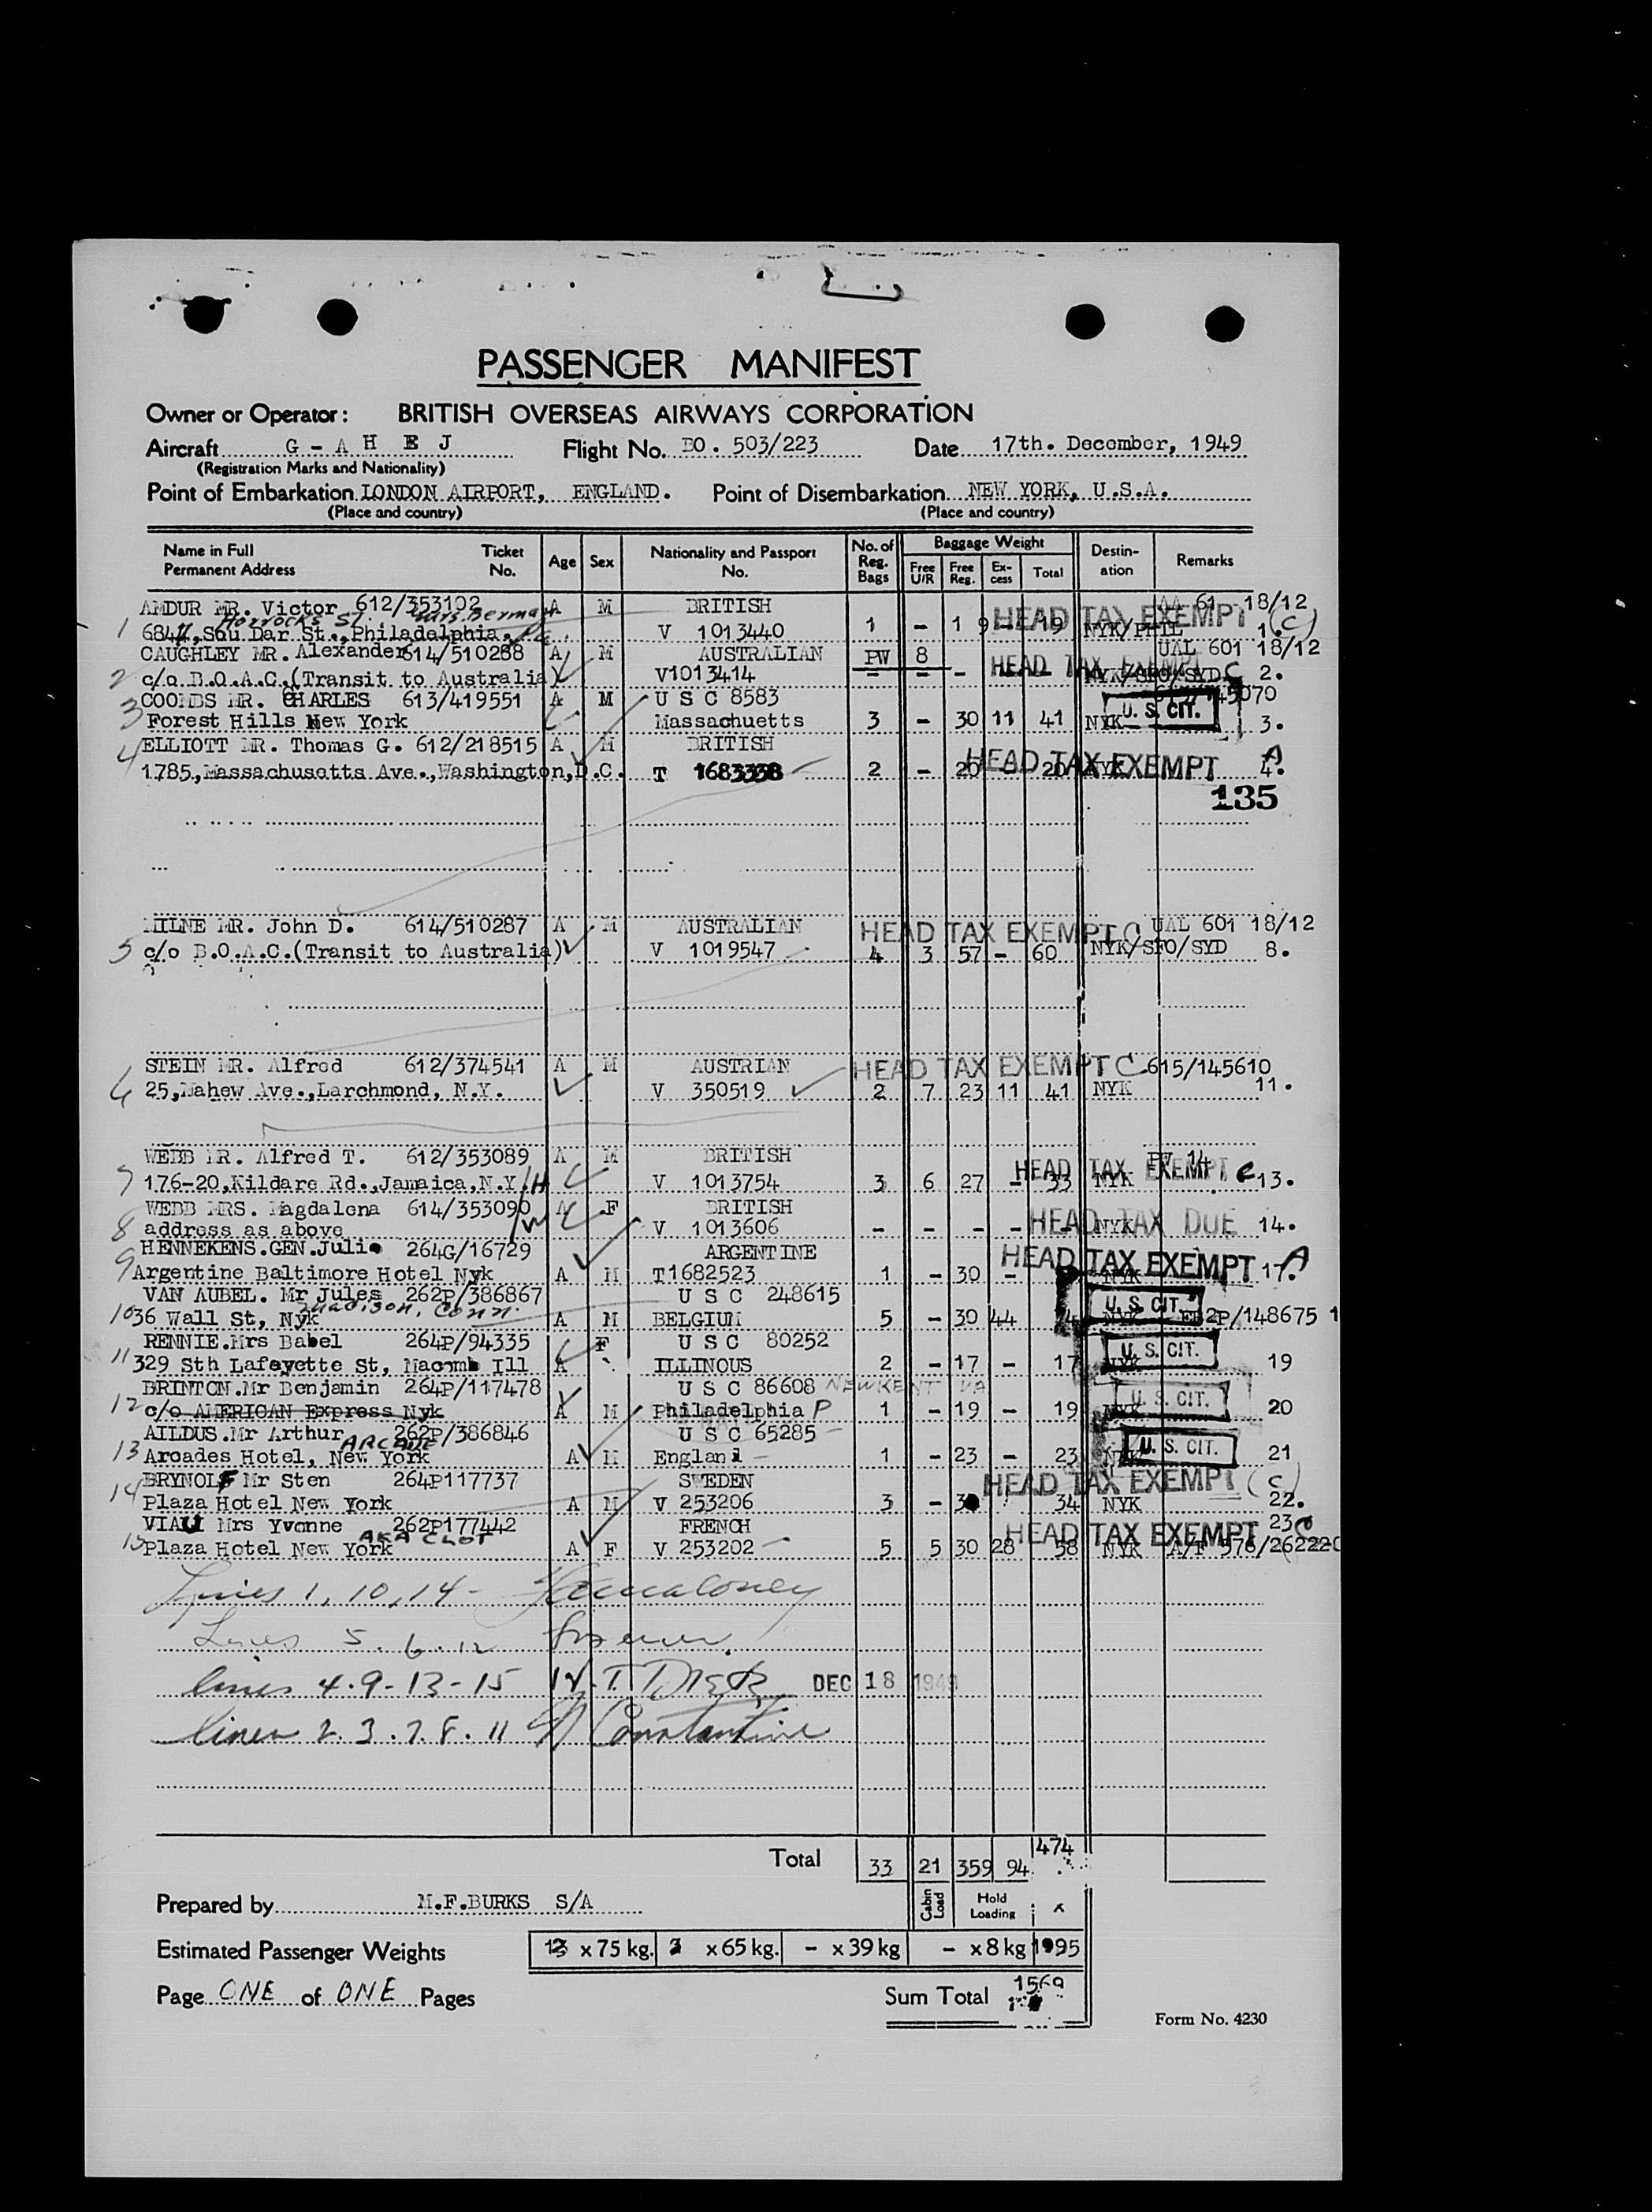 PASSENGER MANIFEST
Owner or Operator: BRITISH OVERSEAS AIRWAYS CORPORATION
Aircraft G - A H E J Flight No. BO. 503/223 Date 17th. December, 1949
(Registration Marks and Nationality)
Point of Embarkation LONDON AIRPORT, ENGLAND. Point of Disembarkation NEW YORK, U.S.A.
(Place and country) (Place and country)
Name in Full Permanent Address Ticket No. Age Sex Nationality and Passport No. No. of Reg. Bags Baggage Weight Free U/R Free Reg. Ex-cess Total Destin-ation Remarks
AMDUR MR. Victor 612/353102 A M BRITISH HEAD TAX EXEMPT (C) AA 61 18/12
Horrocks St. Mrs. Berman
1 6844, Sou Dar St., Philadelphia. V 1013440 1 - 19 - 19 NYK/PHIL 1.
CAUGHLEY MR. Alexander 614/510288 A M AUSTRALIAN PW 8 UAL 601 18/12
2 c/o B.O.A.C.(Transit to Australia) V1013414 - - - HEAD TAX EXEMPT C NYK/SFO/SYD 2.
COOMBS MR. CHARLES 613/419551 A M U S C 8583 U. S. CIT.
3 Forest Hills New York Massachuetts 3 - 30 11 41 NYK 3.
ELLIOTT MR. Thomas G. 612/218515 A M BRITISH
4 1785, Massachusetts Ave., Washington, D.C. T 1683338 2 - 20 - 20 NYK HEAD TAX EXEMPT A 4.
135
MILNE MR. John D. 614/510287 A M AUSTRALIAN HEAD TAX EXEMPT C UAL 601 18/12
5 c/o B.O.A.C.(Transit to Australia) V 1019547 4 3 57 - 60 NYK/SFO/SYD 8.
STEIN MR. Alfred 612/374541 A M AUSTRIAN HEAD TAX EXEMPT C 615/145610
6 25, Mahew Ave., Larchmond, N.Y. V 350519 2 7 23 11 41 NYK 11.
WEBB MR. Alfred T. 612/353089 A M BRITISH PW 14
7 176-20, Kildare Rd., Jamaica, N.Y. /H V 1013754 3 6 27 - 33 NYK HEAD TAX EXEMPT C 13.
WEBB MRS. Magdalena 614/353090 A F BRITISH
8 address as above /W V 1013606 - - - - NYK HEAD TAX DUE 14.
HENNEKENS.GEN.Julio 264G/16729 ARGENTINE
9 Argentine Baltimore Hotel Nyk A M T1682523 1 - 30 - NYK HEAD TAX EXEMPT A 17.
VAN AUBEL. Mr Jules 262P/386867 U S C 248615 U. S. CIT.
Madison, Conn.
10 36 Wall St, Nyk A M BELGIUM 5 - 30 44 74 NYK 2P/148675 1
RENNIE.Mrs Babel 264P/94335 F U S C 80252 U. S. CIT.
11 329 Sth Lafayette St, Macomb Ill A ILLINOUS 2 - 17 - 17 NYK 19
BRINTON.Mr Benjamin 264P/117478 U S C 86608 NEW KENT VA U. S. CIT.
12 c/o AMERICAN Express Nyk A M Philadelphia P 1 - 19 - 19 NYK 20
AILDUS.Mr Arthur 262P/386846 U S C 65285 U. S. CIT.
ARCADE
13 Arcades Hotel, New York A M England 1 - 23 - 23 NYK 21
BRYNOLF Mr Sten 264P117737 SWEDEN HEAD TAX EXEMPT (C)
14 Plaza Hotel New York A M V 253206 3 - 34 NYK 22.
VIAU Mrs Yvonne 262P177442 FRENCH HEAD TAX EXEMPT C 23
AKA CLOT
15 Plaza Hotel New York A F V 253202 5 5 30 28 58 NYK A/F 576/262220
Lines 1, 10, 14 -
Lines 5. 6. 12
lines 4. 9 - 13 - 15 DEC 18 1949
lines 2. 3. 7. 8. 11 Constantine
Total 33 21 359 94 474
Prepared by M.F.BURKS S/A Cabin Load Hold Loading
Estimated Passenger Weights 13 x 75 kg. x 65 kg. - x 39 kg - x 8 kg 1095
Page ONE of ONE Pages Sum Total 1569
Form No. 4230